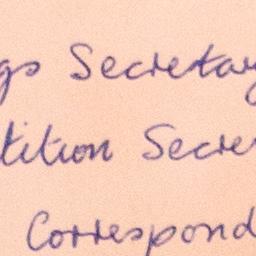 gs Secretary
tition Secre
Correspond